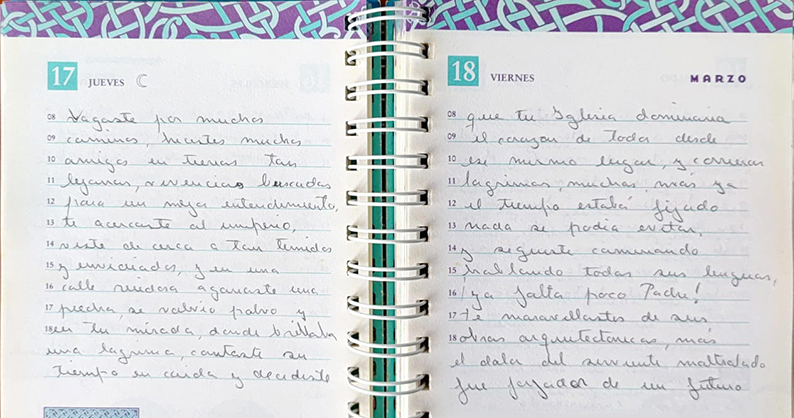 17 JUEVES
08 Vagaste por muchos
09 caminos, hicistes muchos
10 amigos en tierras tan
11 lejanas, vivencias buscadas
12 para un mejor entendimiento,
13 te acercaste al imperio,
14 viste de cerca a tan temidos
15 y enviciados, y en una
16 calle ruidosa agarraste una
17 piedra, se volvio polvo y
18 en tu mirada, donde brillaba
una lagrima, contaste su
tiempo en caida y decidiste
18 VIERNES MARZO
08 que tu Iglesia dominaria
09 el corazon de todos desde
10 ese mismo lugar, y correran
11 lagrimas, muchas, mas ya
12 el tiempo estaba fijado
13 nada se podia evitar,
14 y seguiste caminando
15 hablando todas sus lenguas,
16 ¡ya falta poco Padre!
17 te maravillastes de sus
18 obras arquitectonicas, mas
el dolor del sirviente maltratado
fue forjador de un futuro